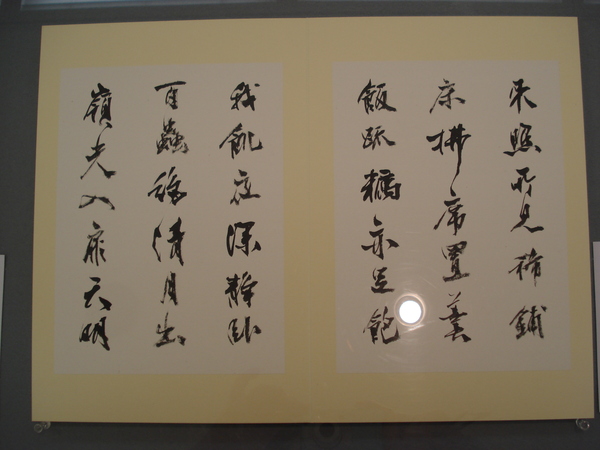 來照所見稀鋪
床拂席置羹
飯疏糲亦足飽
我飢夜深靜臥
百蟲絕清月出
嶺光入扉天明